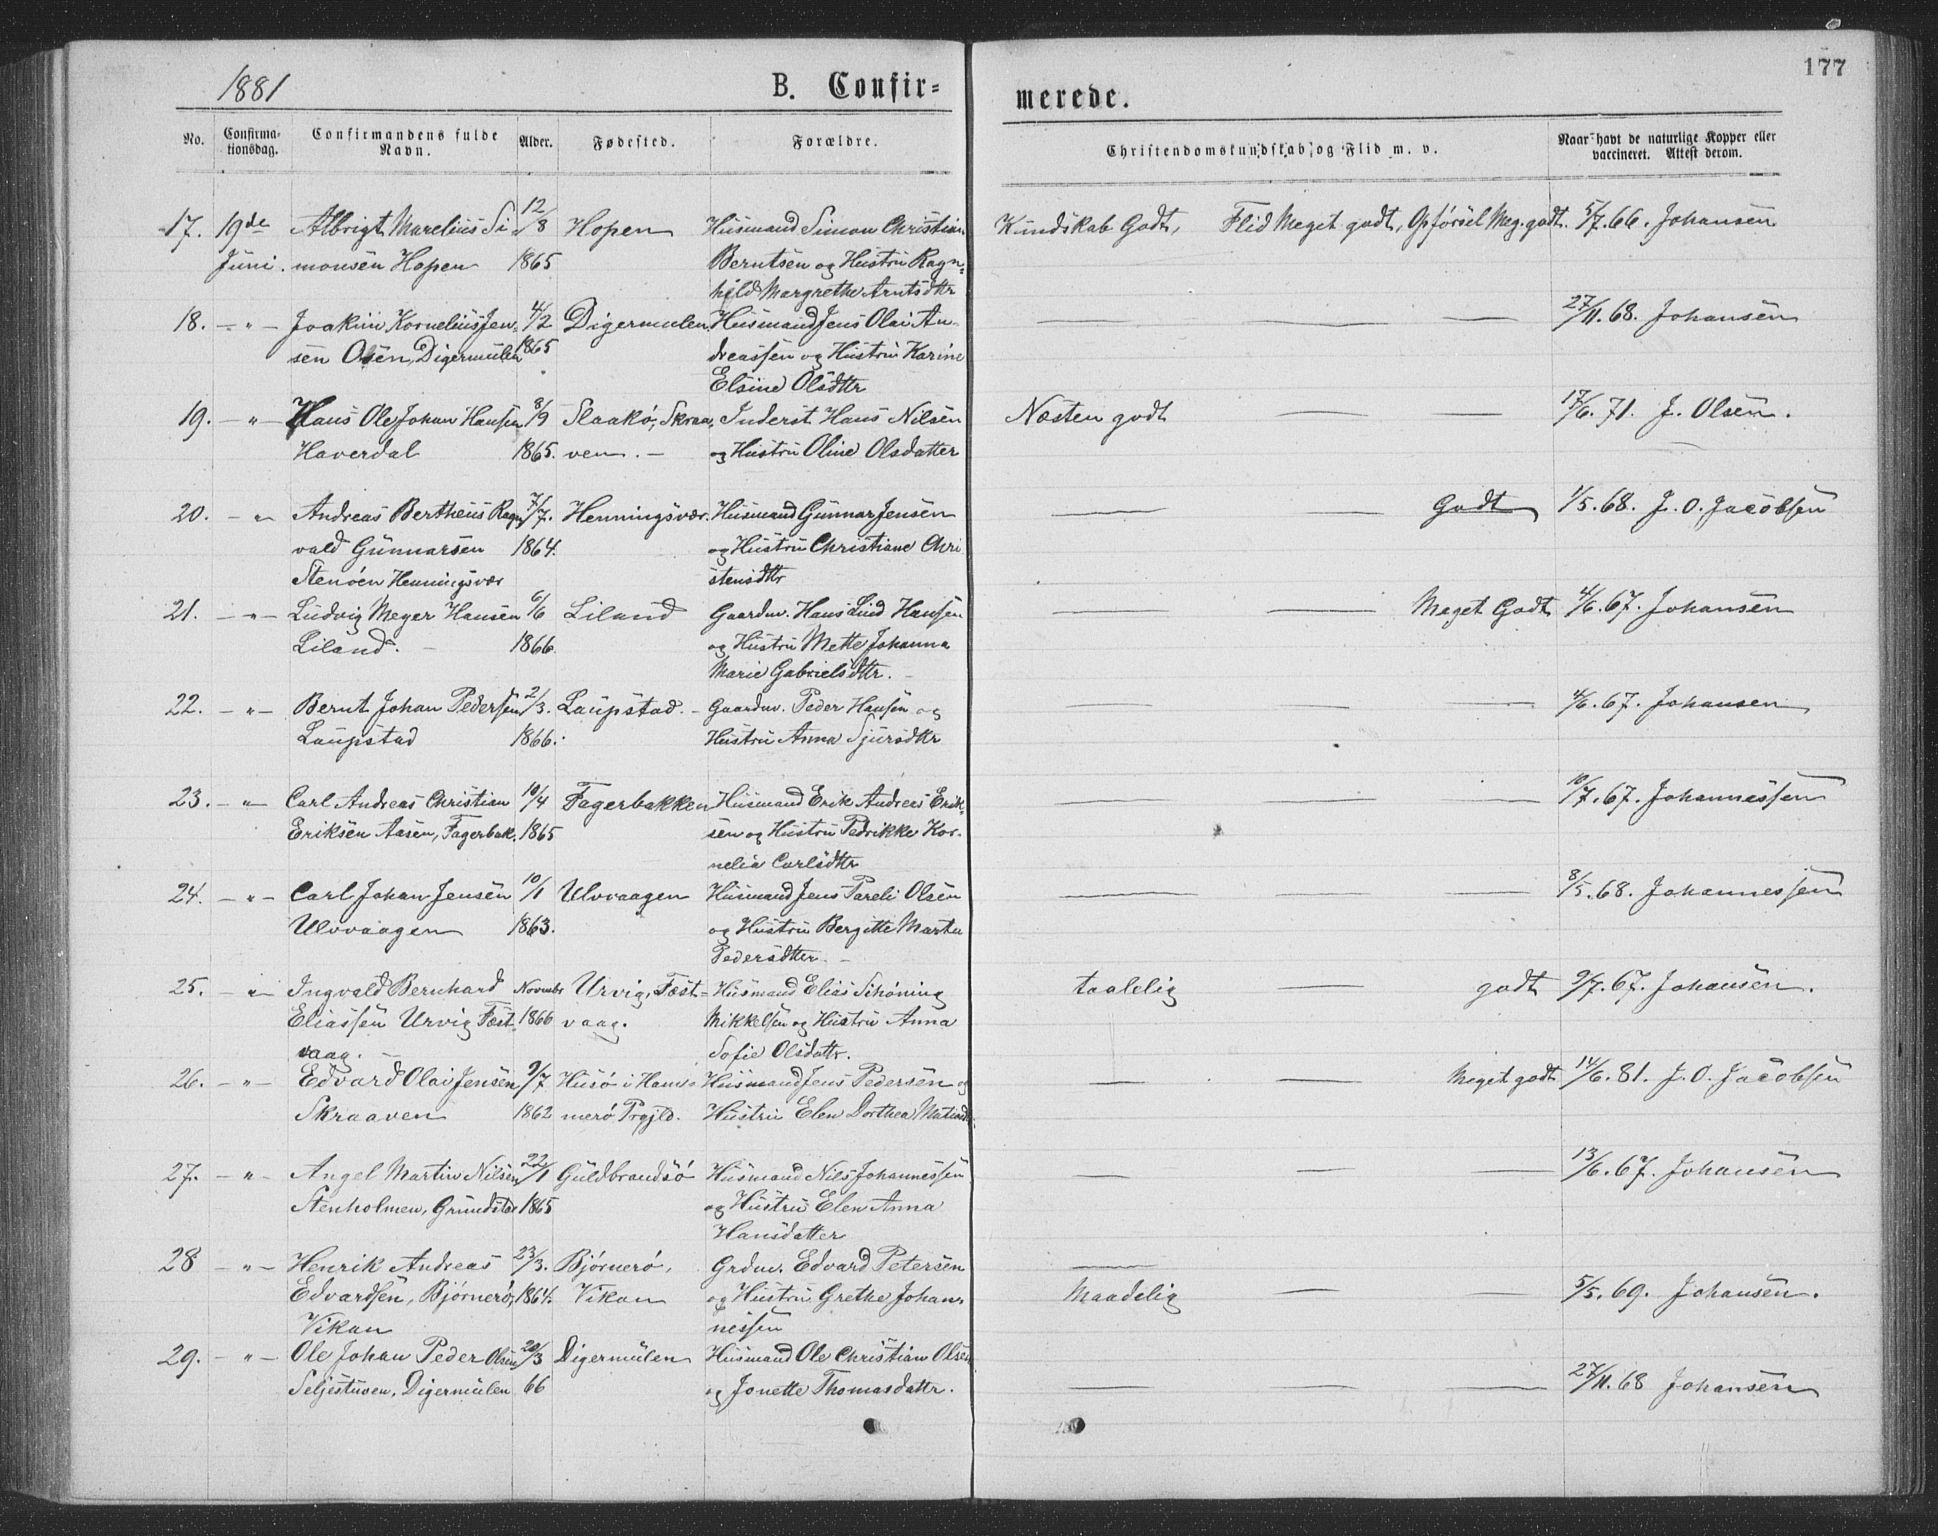 177
1881
B. Confir-
merede.
No. Confirma-tionsdag. Confirmandens fulde Navn. Alder. Fødested. Forældre. Christendomskundskab og Flid m. v. Naar havt de naturlige Kopper eller vaccineret. Attest derom.
17. 19de Albrigt Marelius Si- 12/8 Hopen Husmand Simon Christian Kundskab Godt, Flid Meget godt, Opførsel Meg. godt. 5/7.66. Johansen
Juni. monsen Hopen 1865 Berntsen og Hustru Ragn-
hild Margrethe Arntsdttr
18. - " - Joakim Kornelius Jen- 4/2 Digermulen. Husmand Jens Olai An- — — — 27/11.68. Johansen
sen Osen, Digermulen 1865 dreassen og Hustru Karine
Elsine Olsdttr
19. - " - Hans Ole Johan Hansen 8/9 Slaakø, Skraa- Inderst Hans Nilsen Næsten godt — — 17/6.71. J. Olsen.
Haverdal 1865. ven. - og Hustru Oline Olsdatter
20. - " Andreas Bertheus Ragn- 7/7. Henningsvær. Husmand Gunnar Jensen — — Godt 1/5.68. J. O. Jacobsen
vald Gunnarsen 1864. og Hustru Christiane Chri
Stenøen Henningsvær stensdttr
21. - " - Ludvig Meyer Hansen 6/6 Liland Gaardm. Hans Lind Hansen — — Meget Godt 4/6.67. Johansen
Liland. - 1866. og Hustru Mette Johanna
Marie Gabrielsdttr. -
22. - " - Bernt Johan Pedersen 2/3. Laupstad. - Gaardm. Peder Hansen og — — — 4/6.67. Johansen
Laupstad 1866. Hustru Anna Sjursdttr
23. - " - Carl Andreas Christian 10/4 Fagerbakken Husmand Erik Andreas Erik- — — — 10/7.67. Johannessen
Eriksen Aasen, Fagerbak. 1865 sen og Hustru Pedrikke Kor-
nelia Carlsdttr
24. - " - Carl Johan Jensen 10/1 Ulvvaagen Husmand Jens Pareli Olsen — — — 8/5.68. Johannessen
Ulvvaagen 1863. og Hustru Bergitte Marta
Pedersdtter -
25. - " - Ingvald Bernhard Novembr Urvig, Fæst- Husmand Elias Schøning taalelig — godt 9/7.67. Johansen.
Eliassen Urvig Fæst- 1866 vaag. Mikkelsen og Hustru Anna
vaag. - Sofie Olsdattr.
26. - " - Edvard Olai Jensen 9/7 Husø i Ham- Husmand Jens Pedersen og — — Meget godt 14/6.81. J. O. Jacobsen
Skraaven 1862 merø Prgjld. Hustru Elen Dorthea
27. - " - Angel Martin Nilsen 22/1 Guldbrandsø Husmand Nils Johannessen — — — 13/6.67. Johansen
Stenholmen, Grundstad 1865 og Hustru Elen Anna
Hansdatter
28 - " - Henrik Andreas 23/3. Bjørnerø, Grdm. Edvard Petersen —
Edvardsen, Bjørnerø, 1864. Vikan og Hustru Grethe Johan- Maadelig — — 5/5.69. Johansen.
Vikan nessen
29. - " - Ole Johan Peder Olsen 20/3 Digermulen Husmand Ole Christian Olsen
Seljestuven, Digermulen 66 og Jonette Thomasdattr. — — — 27/11.68 Johansen